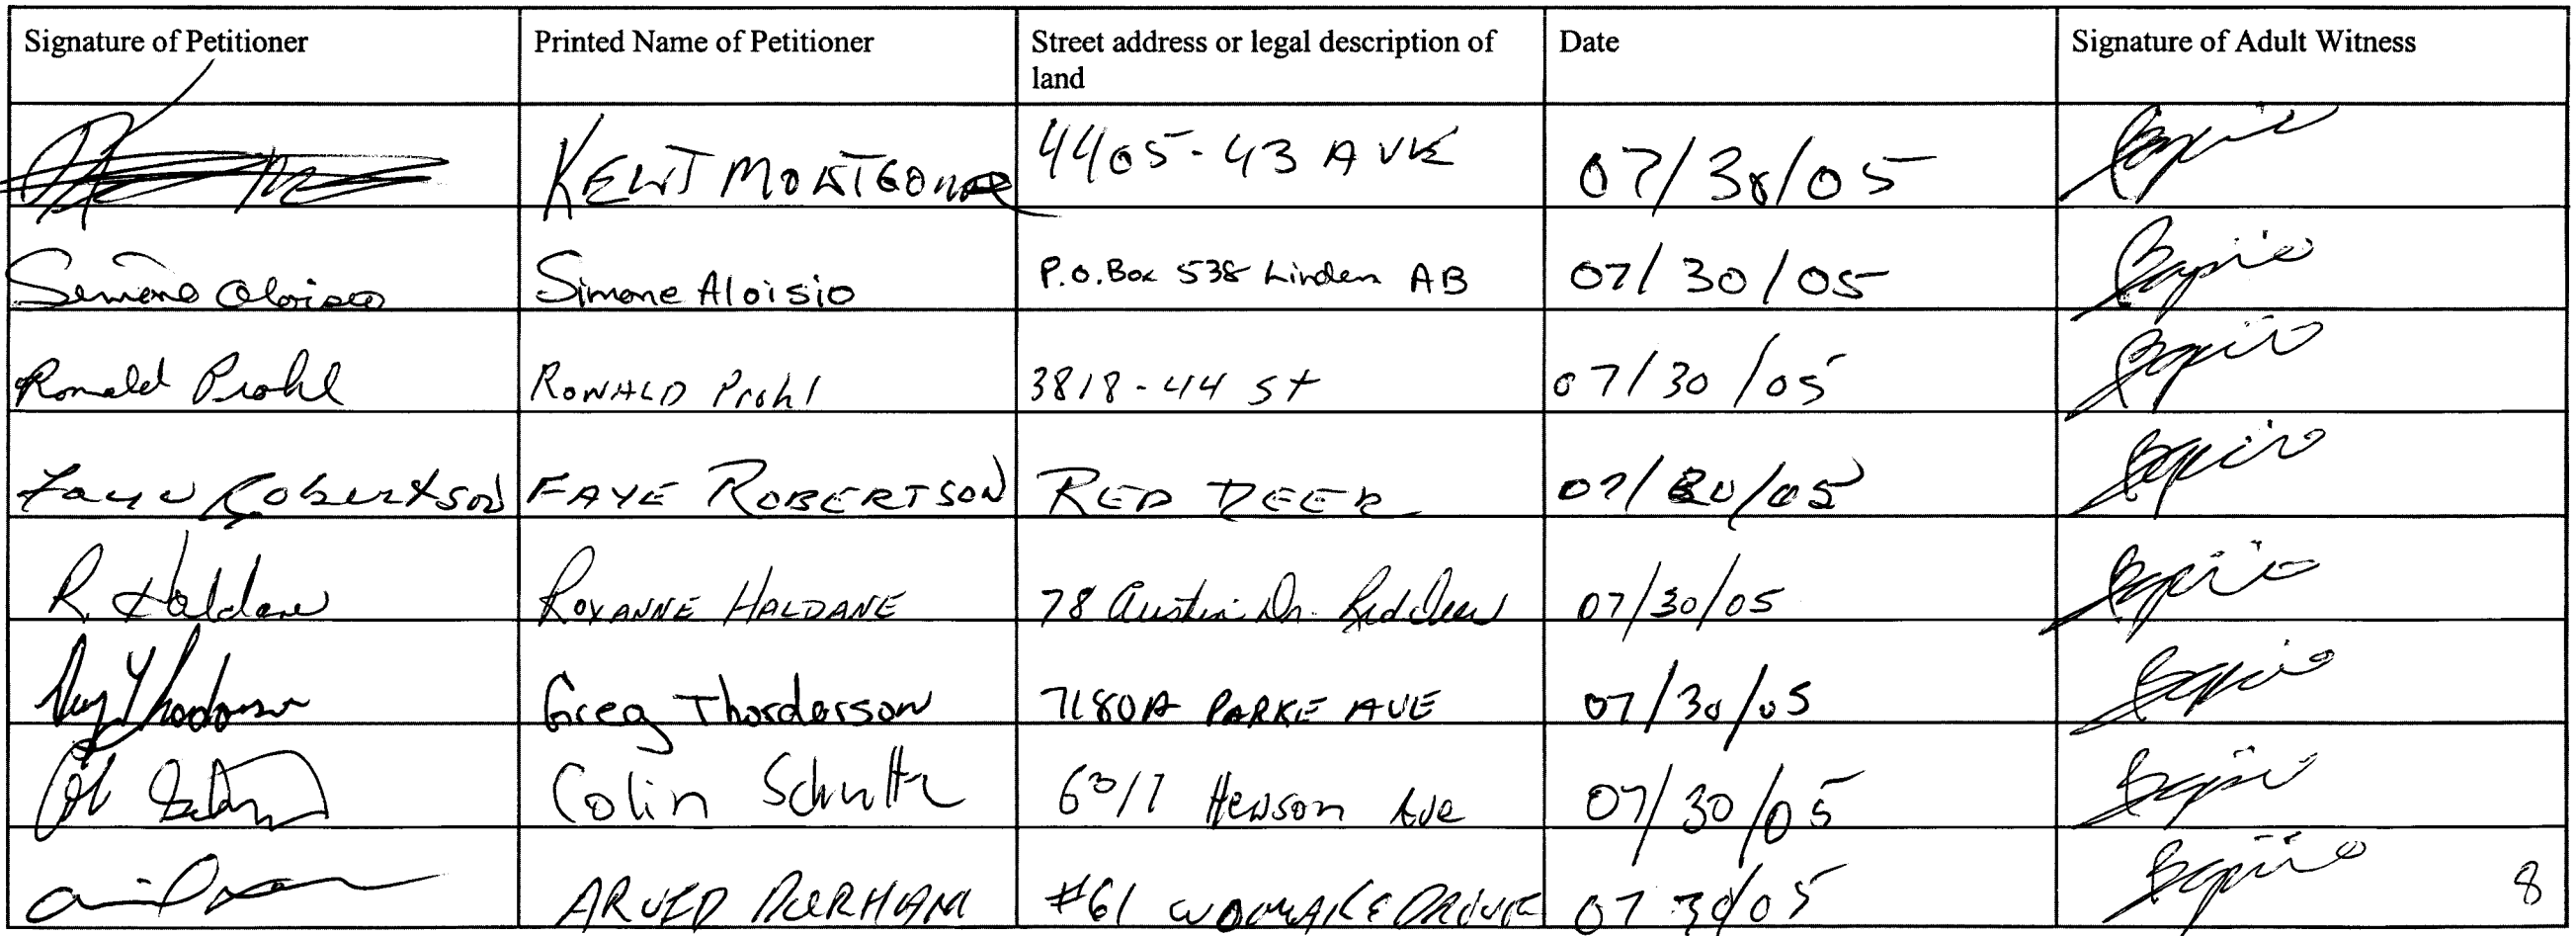 Signature of Petitioner Printed Name of Petitioner Street address or legal description of land Date Signature of Adult Witness
KENT MONTGOMER 4405-43 AVE 07/30/05
Simone Aloisio Simone Aloisio P.O. Box 538 Linden AB 07/30/05
Ronald Prohl RONALD Prohl 3818-44 St 07/30/05
Faye Robertson FAYE ROBERTSON RED DEER 07/30/05
R. Haldane ROXANNE HALDANE 78 Austin Dr. Red Deer 07/30/05
Greg Thorderson Greg Thorderson 7180A PARKE AVE 07/30/05
Colin Schultz 6017 Hewson Ave 07/30/05
ARVID DURHAM #61 DRIVE 07 30/05
8